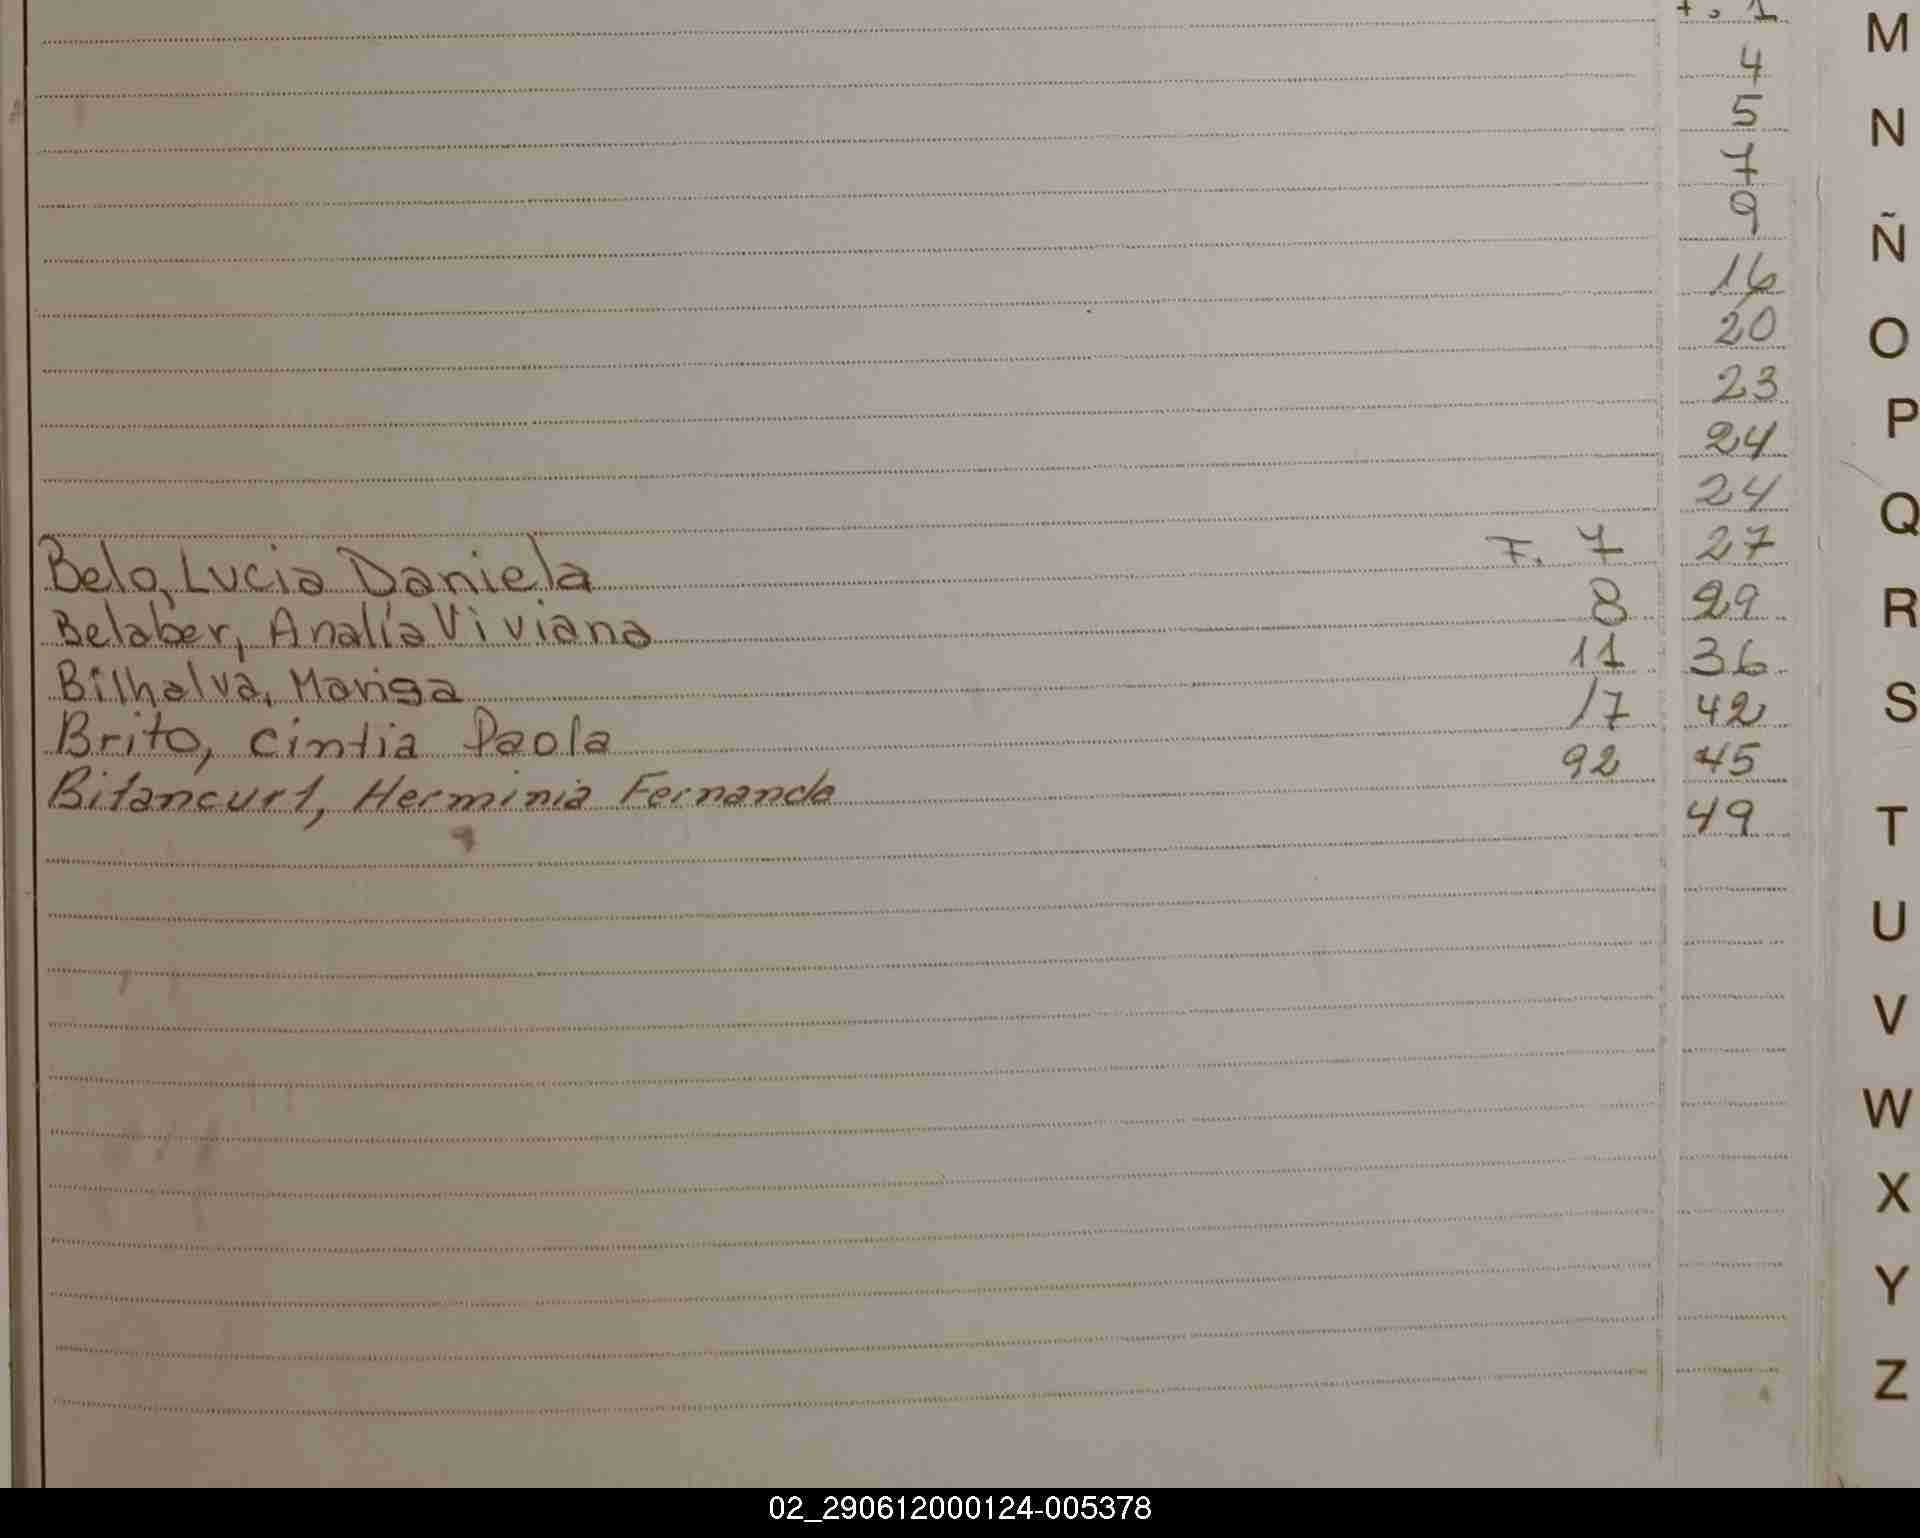 F. 1
4
5
7
9
16
20
23
24
24
27
29
36
42
45
49
Belo, Lucia Daniela F. 7
Belaber, Analía Viviana 8
Bilhalva, Marisa 11
Brito, Cintia Paola 17
Bitancurt, Herminia Fernanda 92
M
N
Ñ
O
P
Q
R
S
T
U
V
W
X
Y
Z
02_290612000124-005378